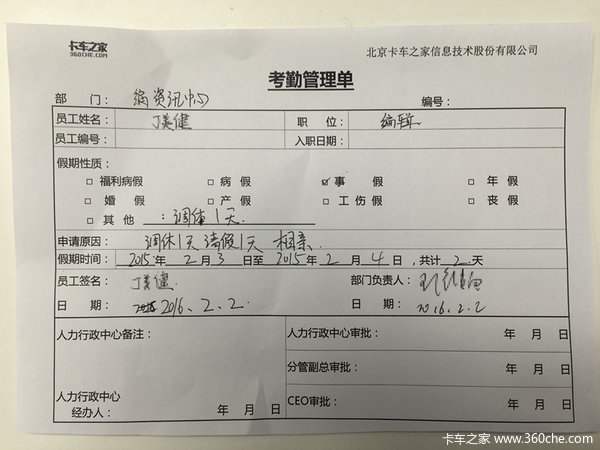 卡车之家
360CHE.COM
北京卡车之家信息技术股份有限公司
考勤管理单
部 门： 编资讯中心 编号：
员工姓名： 丁美健 职 位： 编辑
员工编号： 入职日期：
假期性质：
□ 福利病假 □ 病 假 ☑ 事 假 □ 年 假
□ 婚 假 □ 产 假 □ 工伤假 □ 丧 假
□ 其 他 ：调休1天
申请原因： 调休1天 请假1天 相亲
假期时间： 2015年 2月 3日至 2015年 2月 4日，共计 2 天
员工签名： 丁美健 部门负责人：
日 期： 2016.2.2 日 期： 2016.2.2
人力行政中心备注： 人力行政中心审批： 年 月 日
分管副总审批： 年 月 日
人力行政中心
经办人： 年 月 日 CEO审批： 年 月 日
卡车之家 www.360che.com